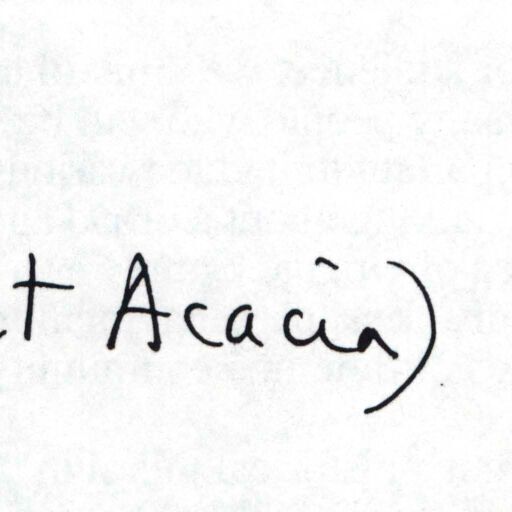 t Acacia)